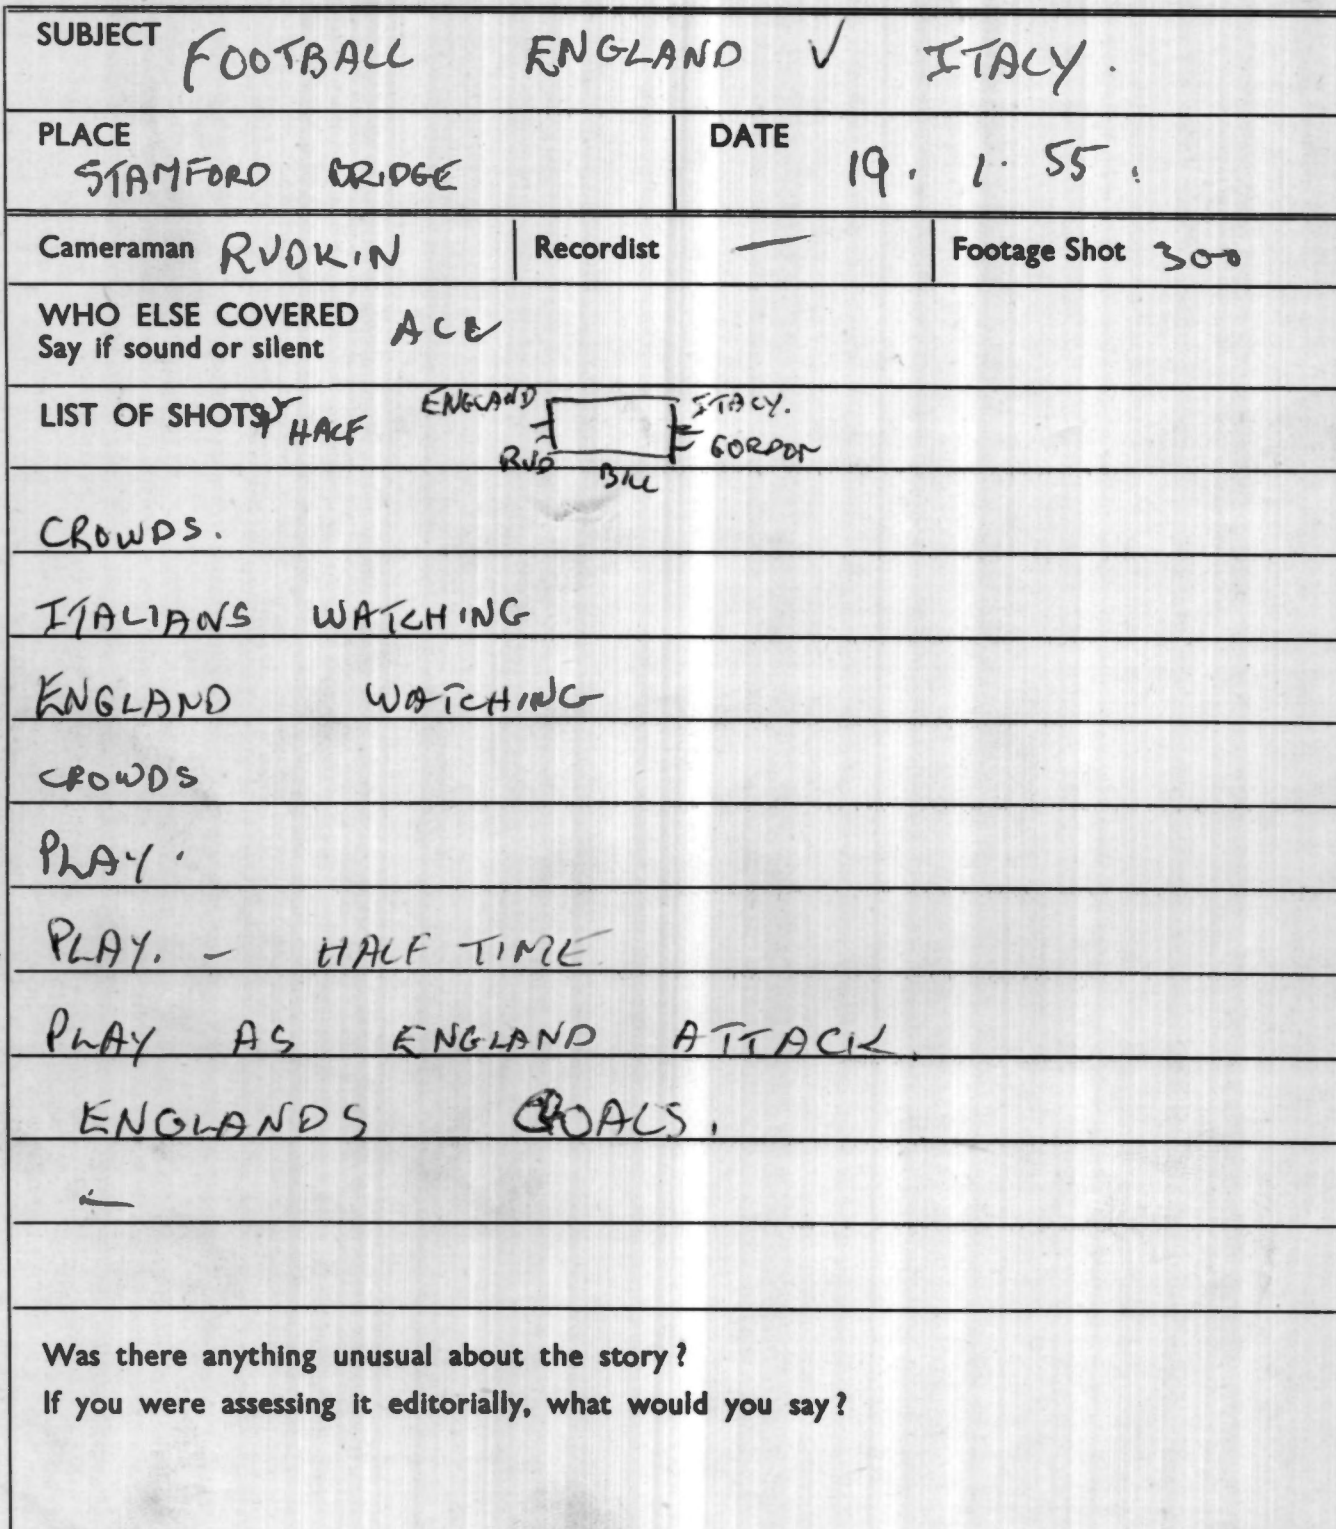 SUBJECT FOOTBALL ENGLAND V ITALY.
PLACE
STAMFORD BRIDGE
DATE 19. 1. 55.
Cameraman RUDKIN Recordist — Footage Shot 300
WHO ELSE COVERED
Say if sound or silent
LIST OF SHOTS HALF
ENGLAND ITALY.
RUD BILL GORDON
CROWDS.
ITALIANS WATCHING
ENGLAND WATCHING
CROWDS
PLAY.
PLAY. - HALF TIME
PLAY AS ENGLAND ATTACK.
ENGLANDS GOALS.
—
Was there anything unusual about the story?
If you were assessing it editorially, what would you say?